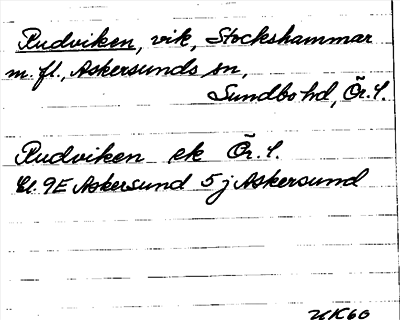 Rudviken, vik, Stockshammar
m.fl., Askersunds sn,
Sundbo hd, Ör.l.
Rudviken ek Ör.l.
Bl. 9E Askersund 5 j Askersund
UK60